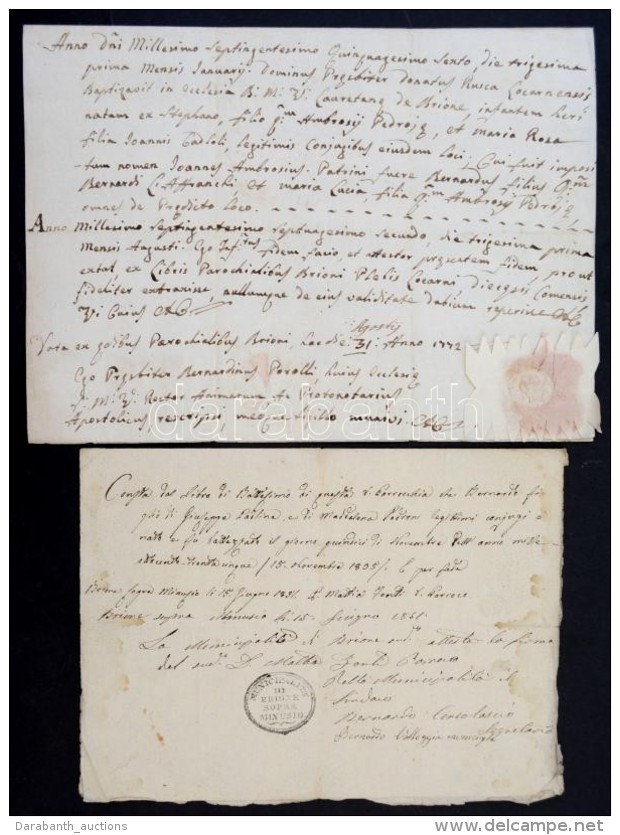 Anno Dni Millesimo Septingentesimo Quinquagesimo Sexto, die trigesima
prima Mensis Ianuarij Dominus Pręsbiter Donatus Rusca Locarnensis
Baptizavit in Ecclesia B: M: V: Lauretanę de Brione, infantem heri
natam ex Stephano, filio qm Ambrosij Pedroj, et Maria Rosa
filia Ioannis, legitimis Conjugibus eiusdem loci; Cui fuit imposi
tum nomen Ioannes Ambrosius. Patrini fuere Bernardus filius qm
Bernardi, et Maria Lucia, filia qm Ambrosij Pedroj
omnes de Predicto loco.
Anno Millesimo Septingentesimo Septuagesimo Secundo, die trigesima prima
Mensis Augusti. Ego fidem facio, et attestor presentem fidem, prout
extat, ex Libris Parochialibus Brioni Plebis Locarni Diecęsis Comensis
fideliter extraxisse, nullumque de eius validitate dubium reperire
Agosti
ex Parochialibus Brioni, 31. Anno 1772
Ego Pręsbiter Bernardinus, huius Ecclesię
M: V: Rector Animarum Ac Protonotarius
Apostolicus, rescripsi, meoque munivi
darabanth
Consta dal Libro di Battesimi di questa V. Parrocchia che Bernardo fi
glio di Giuseppe, e di Madalena legittimi conjugi è
nato e fu battezzato il giorno quindici di Novembre dell'anno mille
ottocento trenta cinque /15. Novembre 1835/. E per fede
Brione sopra Minusio li 15. Giugno 1851. Mattia Ponti V. Parroco
Brione supra Minusio li 15 Giugno 1851
La Municipalità di Brione attesta la firma
del Mattia Ponti Parroco
Per la Municipalità il
Sindaco
Bernardo
Bernardo Segretario
MUNICIPALITÀ
DI
BRIONE
SOPRA
MINUSIO
Darabanth_auctions